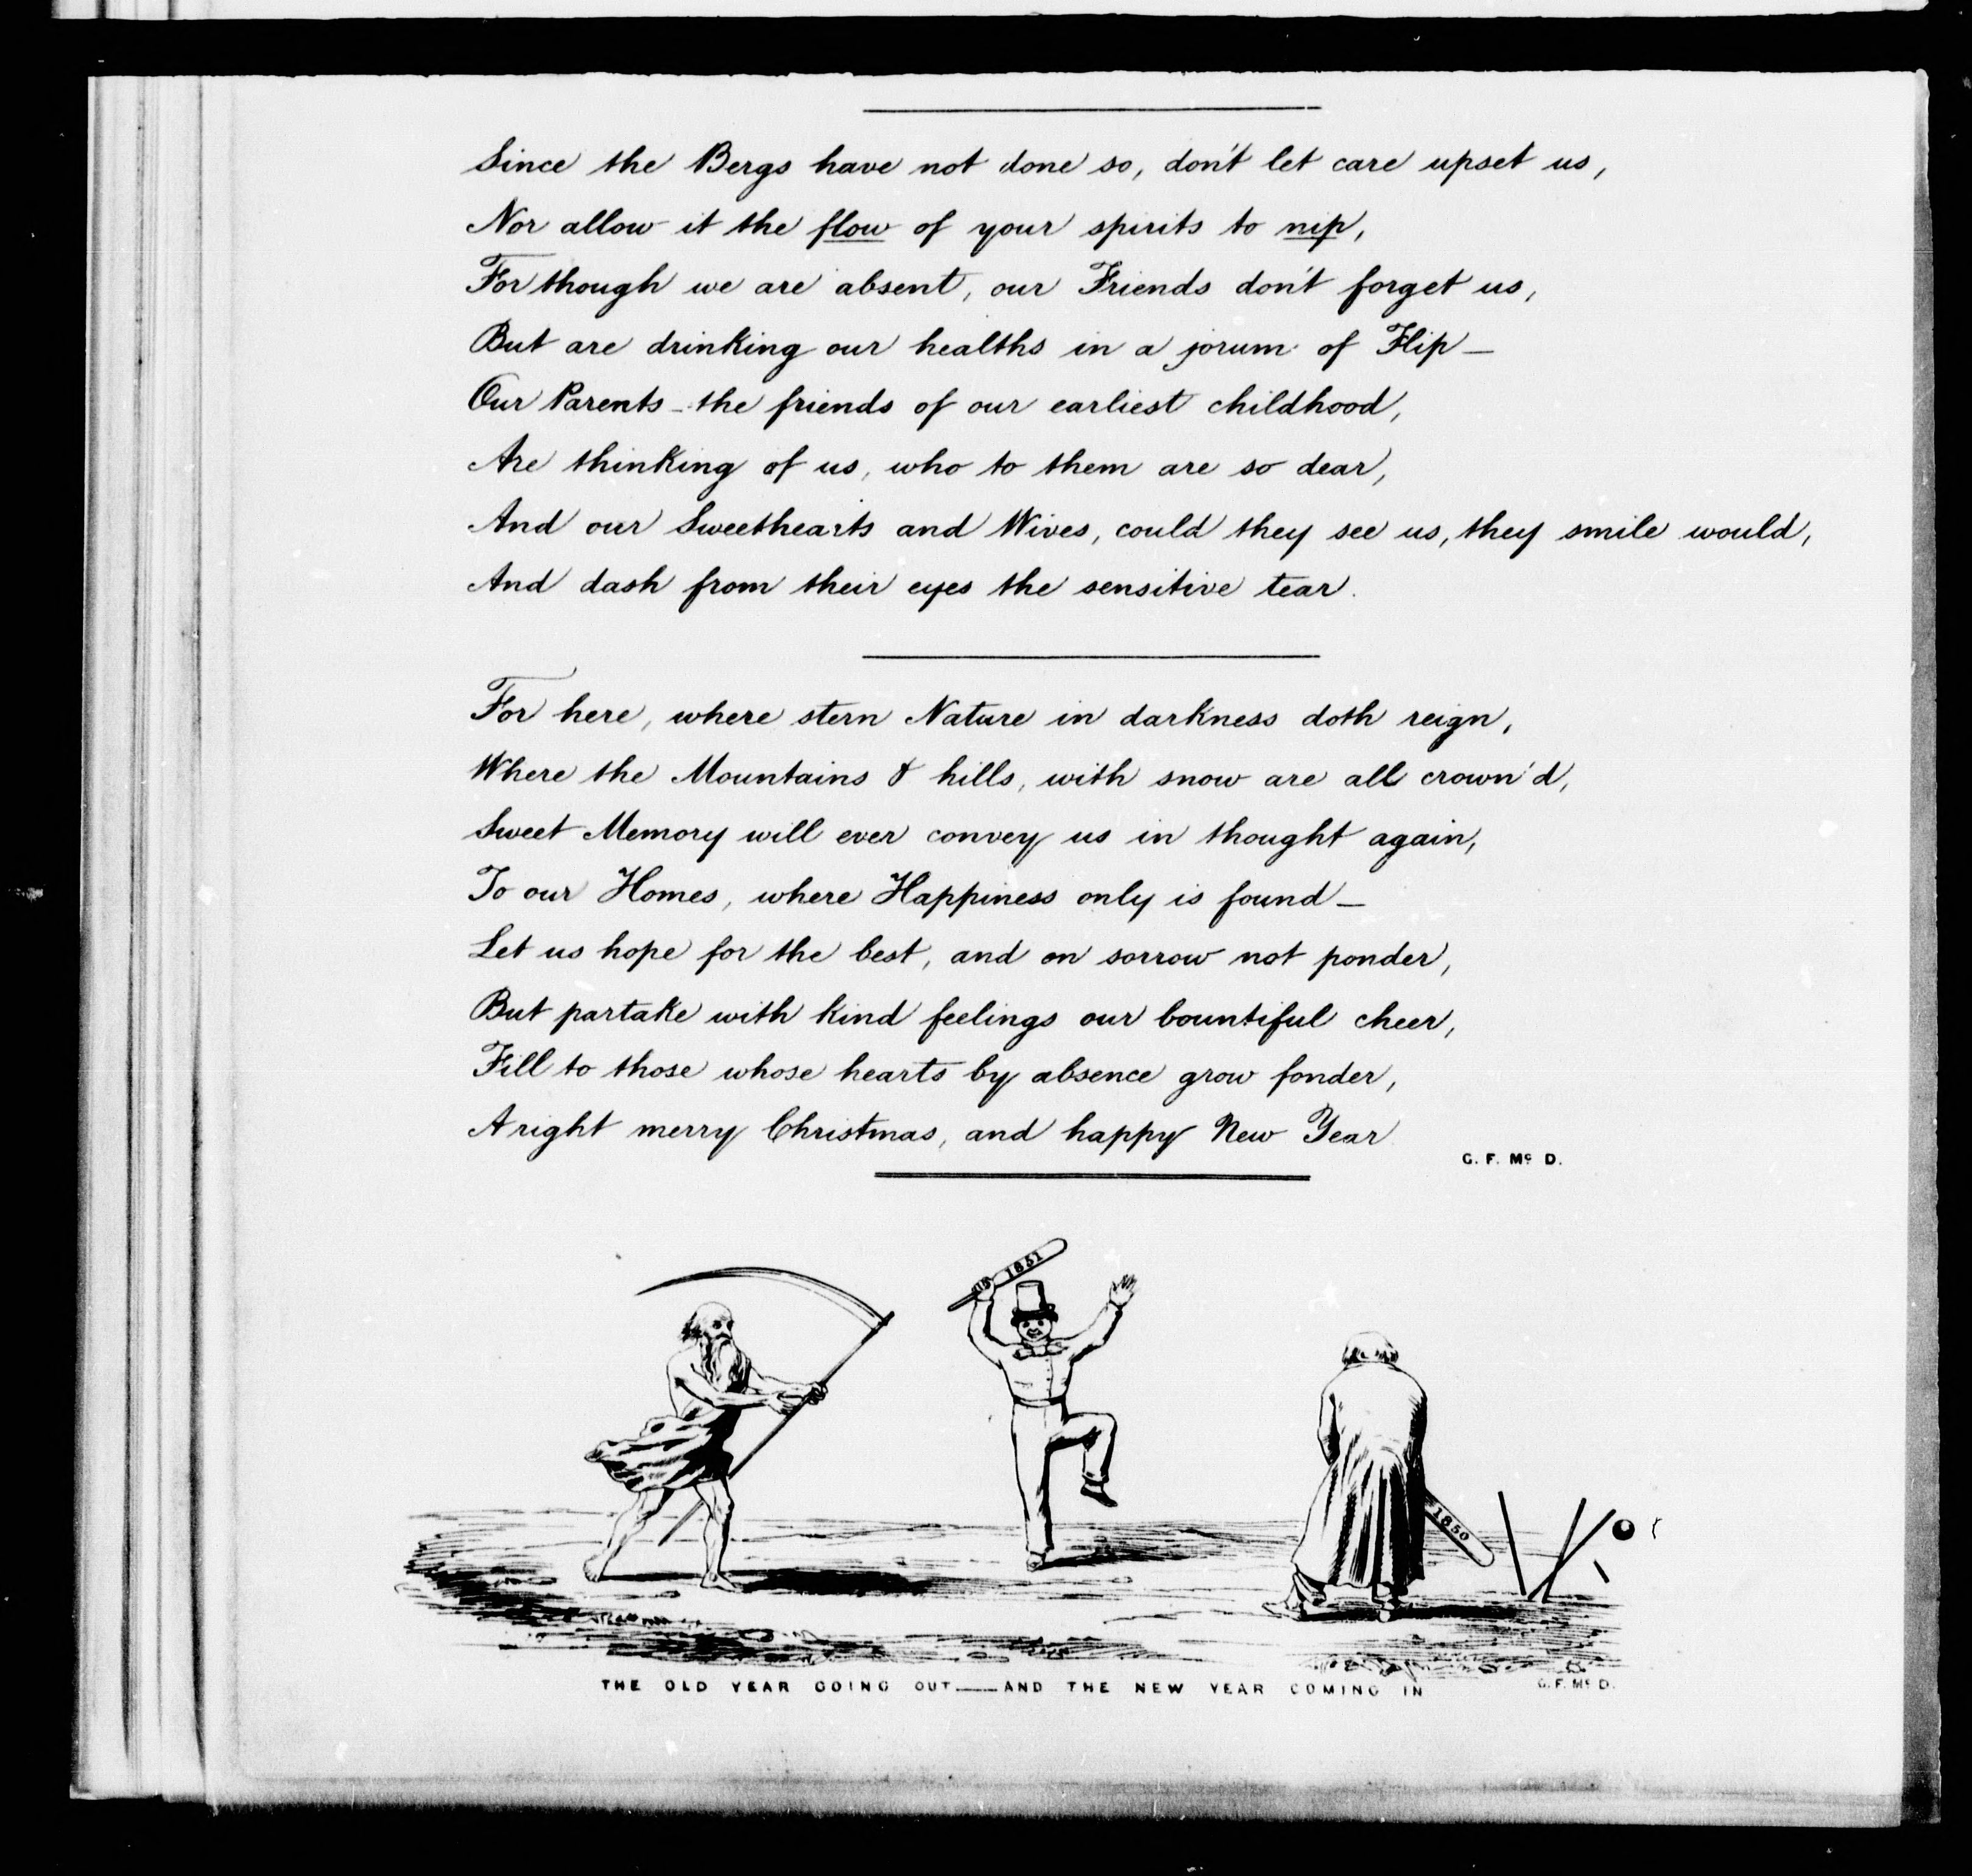 Since the Bergs have not done so, don't let care upset us,
Nor allow it the flow of your spirits to nip,
For though we are absent, our Friends don't forget us,
But are drinking our healths in a jorum of Flip—
Our Parents—the friends of our earliest childhood,
Are thinking of us, who to them are so dear,
And our Sweethearts and Wives, could they see us, they smile would,
And dash from their eyes the sensitive tear.
For here, where stern Nature in darkness doth reign,
Where the Mountains & hills, with snow are all crown'd,
Sweet Memory will ever convey us in thought again,
To our Homes, where Happiness only is found—
Let us hope for the best, and on sorrow not ponder,
But partake with kind feelings our bountiful cheer,
Fill to those whose hearts by absence grow fonder,
A right merry Christmas, and happy New Year
G. F. Mc D.
1851
1850
THE OLD YEAR GOING OUT——AND THE NEW YEAR COMING IN
G. F. Mc D.